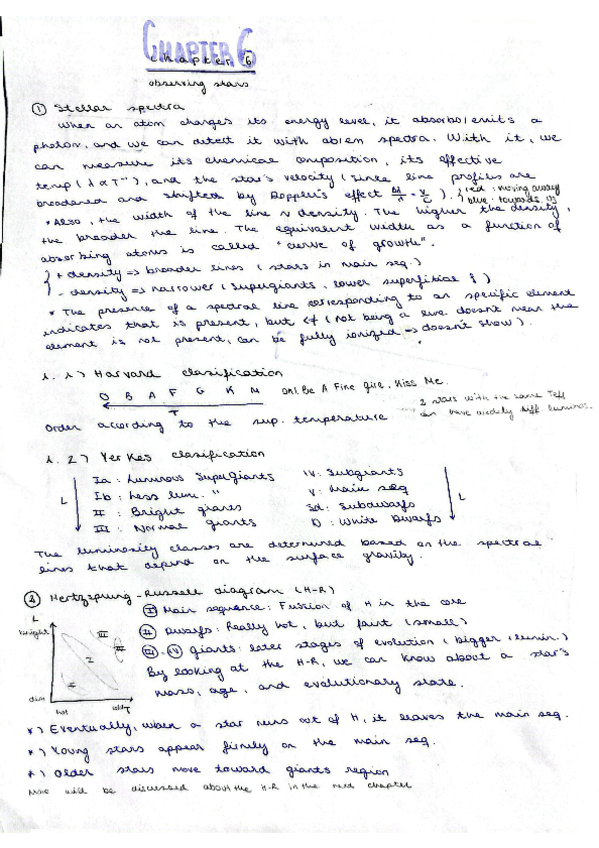 CHAPTER 6
chapter 6
observing stars
① Stellar spectra
When an atom changes its energy level, it absorbs/emits a
photon, and we can detect it with ab/em spectra. With it, we
can measure its chemical composition, its effective
temp (λ ∝ T⁻¹), and the star's velocity (since line profiles are
broadened and shifted by Doppler's effect Δλ/λ = v/c). { red: moving away
blue: towards us
* Also, the width of the line ~ density. The higher the density,
the broader the line. The equivalent width as a function of
absorbing atoms is called "curve of growth".
} + density => broader lines (stars in main seq.)
} - density => narrower (supergiants, lower superficial g)
* The presence of a spectral line corresponding to an specific element
indicates that is present, but (not being a line doesn't mean the
element is not present, can be fully ionized => doesn't show).
1.1> Harvard clasification
O B A F G K M Oh! Be A Fine Girl, Kiss Me.
T
Order according to the sup. temperature
2 stars with the same Teff
can have widely diff. luminos.
1.2> Yerkes clasification
L
Ia: Luminous Supergiants
Ib: Less lum. "
II: Bright giants
III: Normal giants
IV: Subgiants
V: Main seq
Sd: Subdwarfs
D: White Dwarfs
L
The luminosity classes are determined based on the spectral
lines that depend on the surface gravity.
② Hertzsprung-Russell diagram (H-R)
L
bright
dim
hot
cold T
I
II
III
Ⅰ Main sequence: Fussion of H in the core
Ⅱ Dwarfs: Really hot, but faint (small)
Ⅲ-Ⅳ giants: later stages of evolution (bigger, lumin.)
By looking at the H-R, we can know about a star's
mass, age, and evolutionary state.
*) Eventually, when a star runs out of H, it leaves the main seq.
*) Young stars appear firmly on the main seq.
*) Older stars move toward giants region
More will be discussed about the H-R in the next chapter